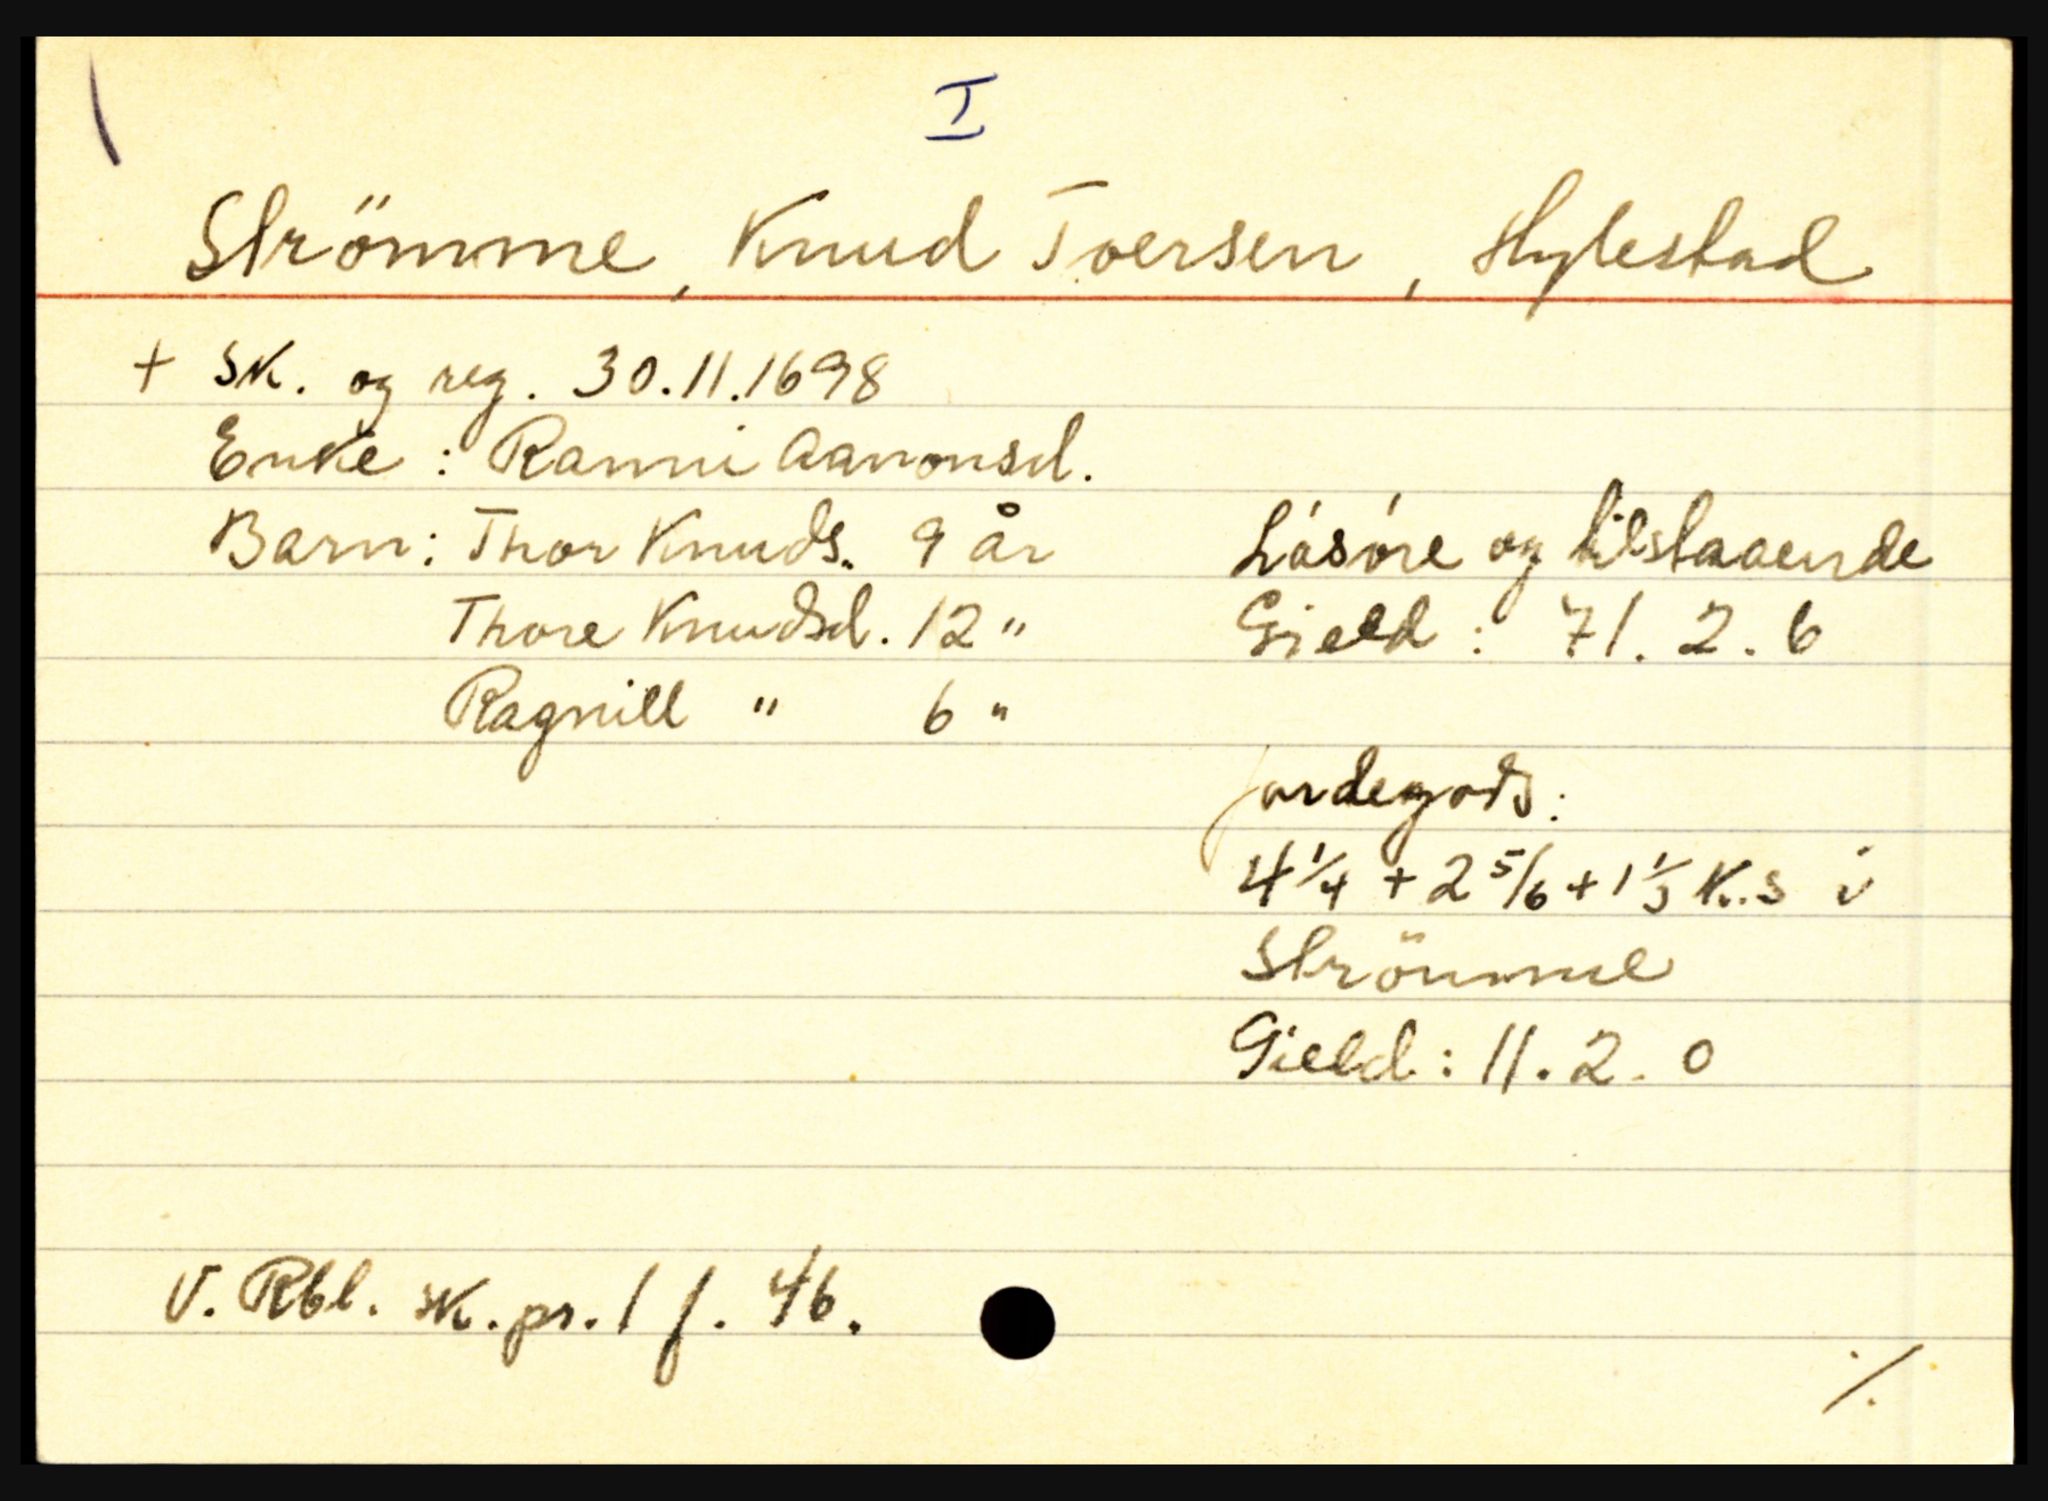 I
Strömme, Knud Tversen, Hylestad
+ sk. og reg. 30.11.1698
Enke: Ranni Aanonsd.
Barn: Thor Knuds. 9 år
Thore Knudsd. 12 "
Ragnill " 6 "
Lósóre og tilstaaende
Gield: 71. 2. 6
jordegods:
4 1/4 + 2 5/6 + 1 1/3 K.s i
Strömme
Gield: 11. 2. 0
V. Rbl. sk. pr. 1 f. 46.
./.